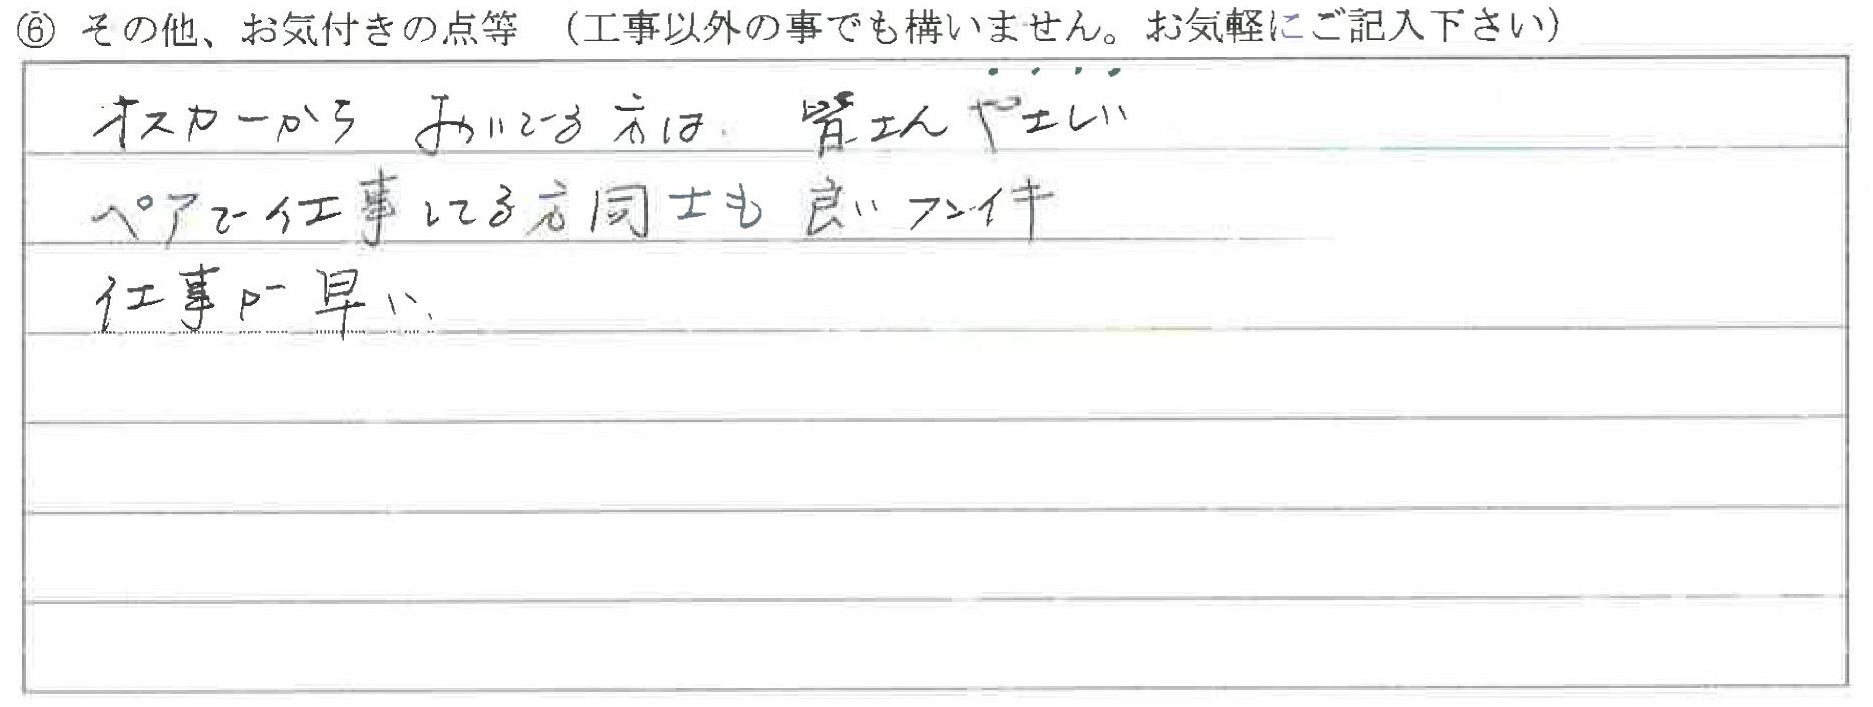 ⑥ その他、お気付きの点等 (工事以外の事でも構いません。お気軽にご記入下さい)
オスカーから おいでる方は 皆さん やさしい
ペアで仕事してる方同士も 良いフンイキ
仕事が早い、